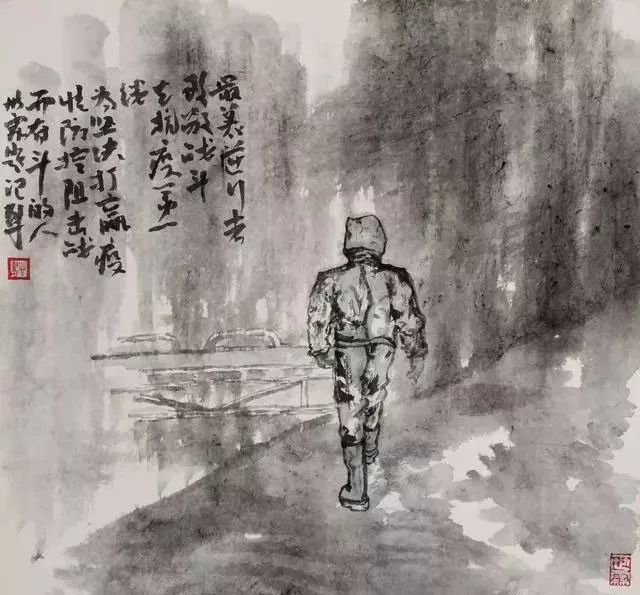 最美逆行者
致敬战斗
在抗疫第一
线
为坚决打赢疫
情防控阻击战
而奋斗的人